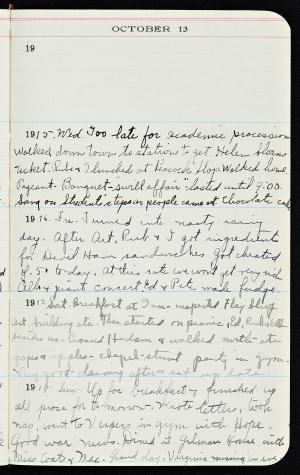 OCTOBER 13
19
1915. Wed. Too late for academic procession
Walked down town to station to get Helen
ticket. Rube & I lunched at Peacock Shop. Walked home.
Pageant. Banquet - swell affair - lasted until 9:00.
Sang on Students' steps as people came at chocolate
1916. Fri. Turned into nasty rainy
day. After Art, Rub & I got ingredients
for Devil Ham sandwiches. Got cheated
to day. At this rate we wont get very rich
Cello & piano concert. Ed & Pete made fudge.
1917. Sat. Breakfast at 7 - inspected Play Shop,
art building etc. Then started on picnic, Ed,
Crossed Hudson & walked north - ate
apples - chapel - stunt party in gym.
Very good - dancing after - sat up late.
19 Sun. Up for breakfast & finished up
all prose for tomorrow. Wrote letters, took
nap, went to Vespers in gym with Hope.
Good war news. Dined at with
Miss Coats & Mac. Grand day. Virginia missing in eve